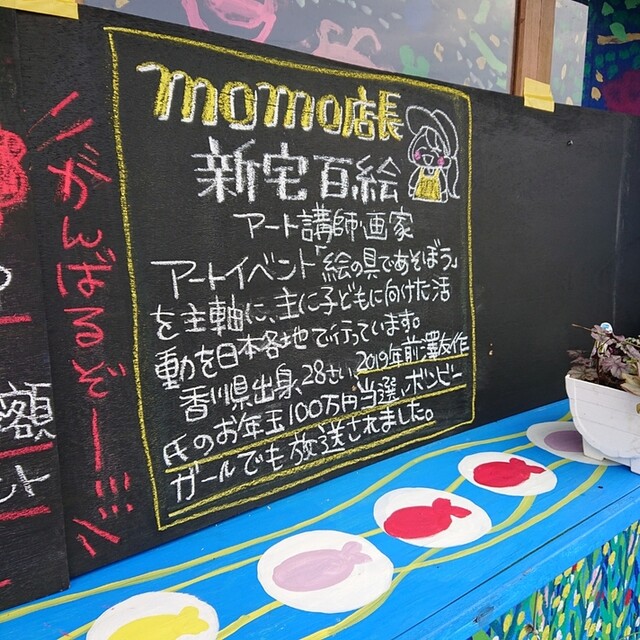 momo店長
新宅百絵
アート講師・画家
アートイベント「絵の具であそぼう」
を主軸に、主に子どもに向けた活
動を日本各地で行っています。
香川県出身、28さい、2019年前澤友作
氏のお年玉100万円当選、ボンビー
ガールでも放送されました。
がんばるぞー!!!
額
ント